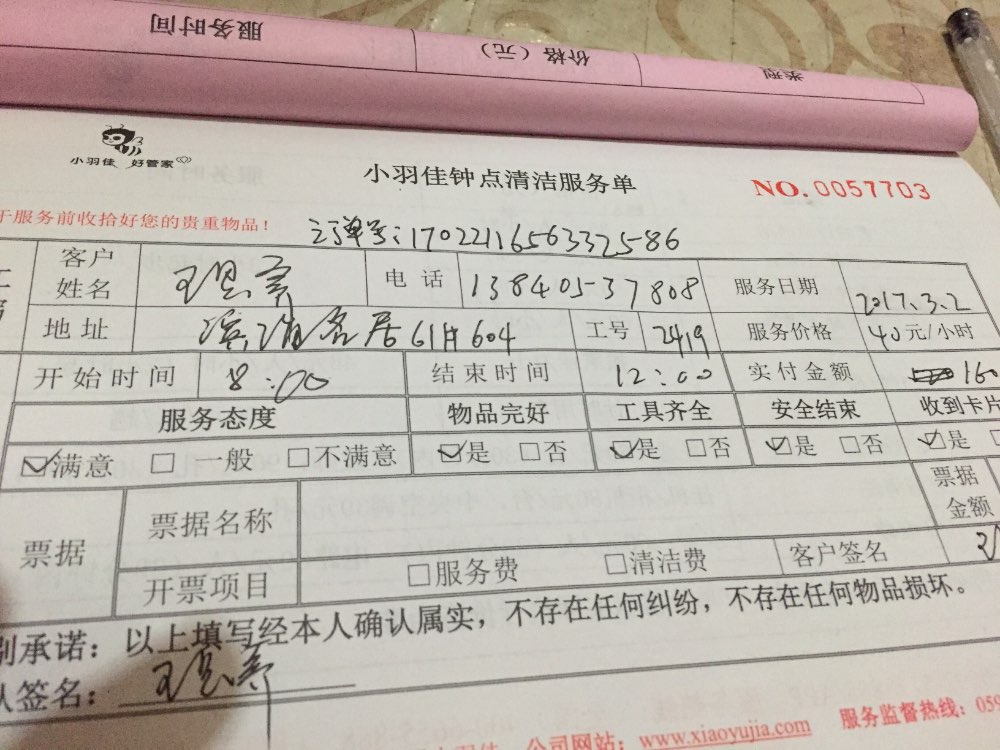 服务时间
价格（元）
类型
小羽佳 好管家
小羽佳钟点清洁服务单
NO.0057703
于服务前收拾好您的贵重物品！
订单号：1702211656332586
客户姓名
电话 13840537808
服务日期 2017.3.2
地址 604
工号 2419
服务价格 40元/小时
开始时间 8:00
结束时间 12:00
实付金额 160
服务态度 物品完好 工具齐全 安全结束 收到卡片
☑满意 □一般 □不满意 ☑是 □否 ☑是 □否 ☑是 □否 ☑是
票据 票据名称
票据金额
开票项目 □服务费 □清洁费 客户签名
别承诺：以上填写经本人确认属实，不存在任何纠纷，不存在任何物品损坏。
人签名：
公司网站：www.xiaoyujia.com 服务监督热线：059